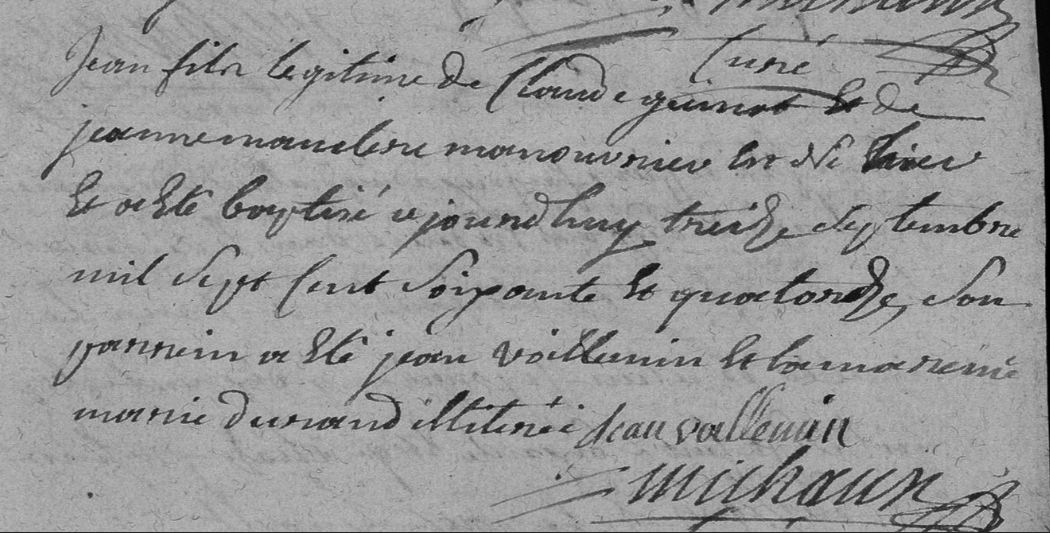 Curé
Jean fils legitime de Claude guinot Et de
jeanne mauclere manouvrier Est né hier
Et a Eté baptisé ce jourdhuy treize septembre
mil sept Cent soixante Et quatorze, son
parrein a Eté jean vallemin Et la mareine
marie durand illiterée jean vallemin
michaux